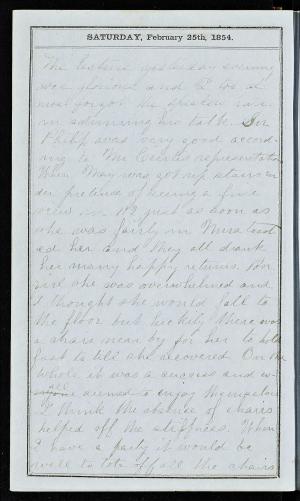 SATURDAY, February 25th, 1854.
The lecture yesterday evening
was glorious and I too al
most forgot the
in admiring his talk. Sir
Philip was very good accord
ing to representation
When May was got up stairs un
der pretense of seeing a fine
view in No 2 just as soon as
she was fairly in Nina toast
ed her and they all drank
her many happy returns. Poor
girl she was overwhelmed and
I thought she would fall to
the floor but luckily there was
a chair near by for her to hold
fast to till she recovered On the
whole it was a success and ev
all seemed to enjoy themselves
I think the absence of chairs
helped off the stiffness. When
I have a party it would be
well to tote off all the chairs